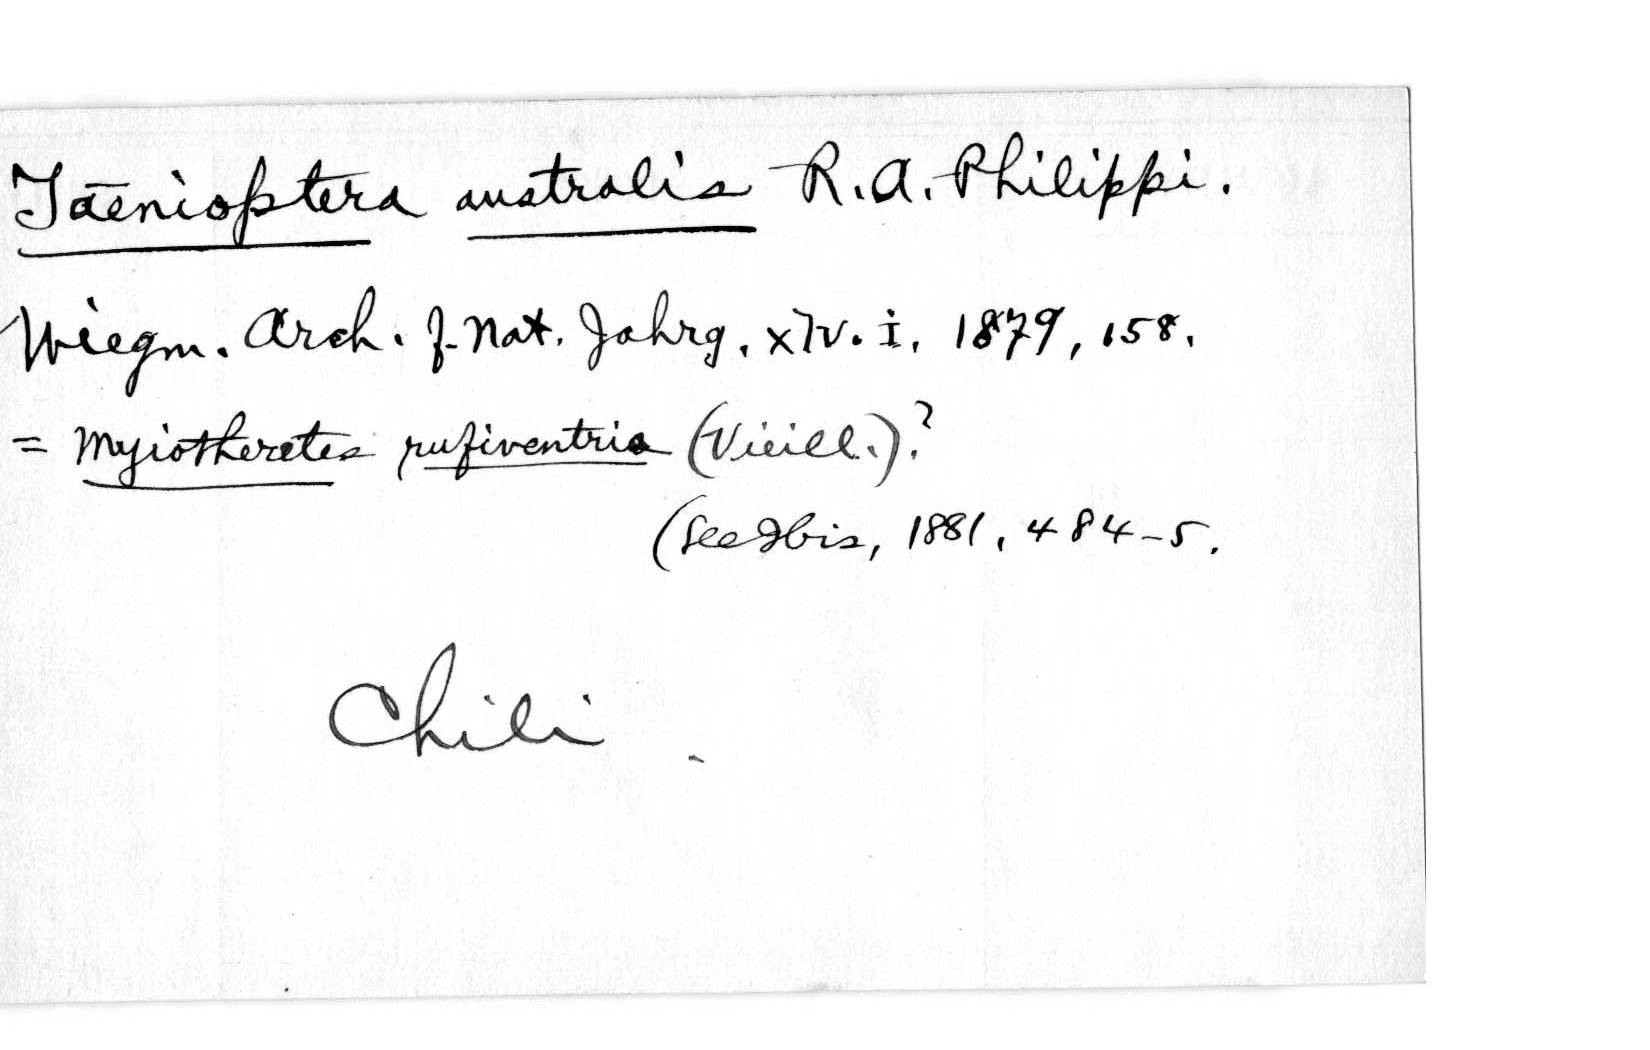 Taenioptera australis R.A. Philippi.
Wiegm. Arch. f. Nat. Jahrg. xlv. i. 1879, 158.
= Myiotheretes rufiventris (Vieill.)?
(See Ibis, 1881, 484-5.
Chili